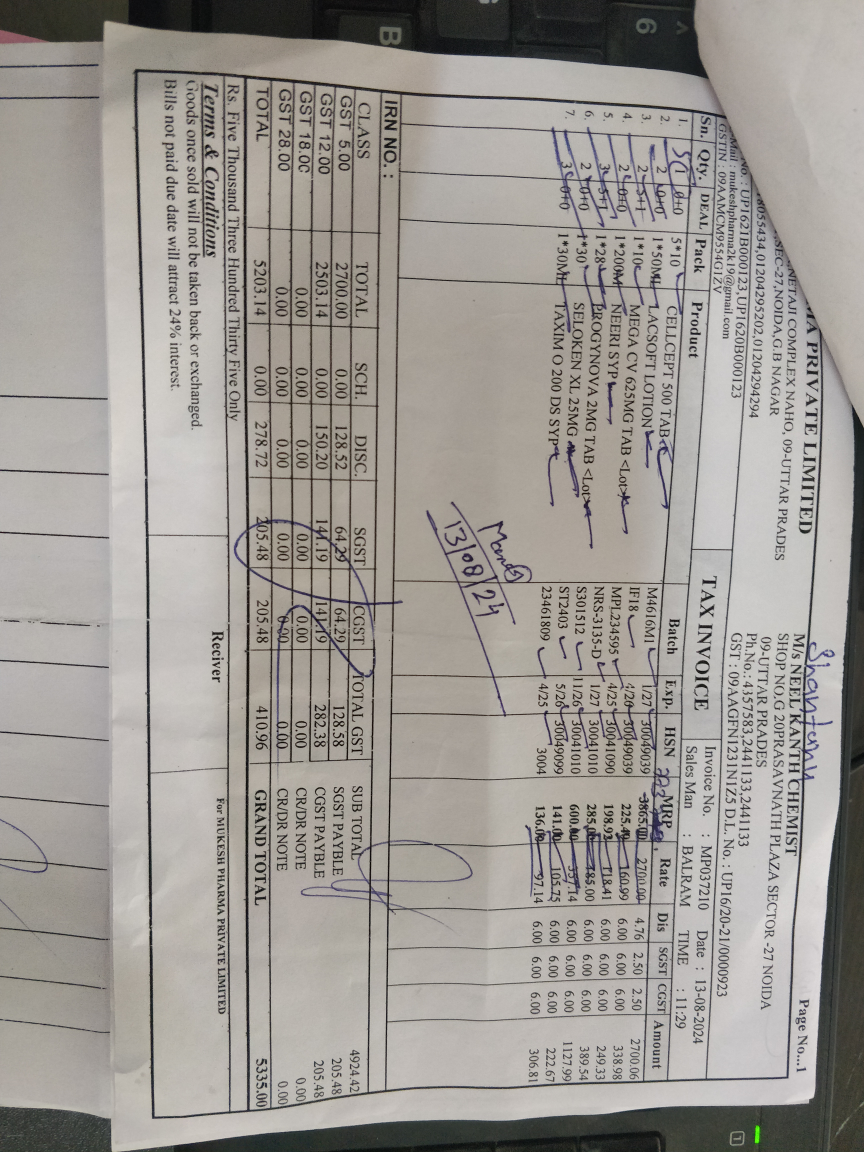 MA PRIVATE LIMITED
NETAJI COMPLEX NAHO, 09-UTTAR PRADES
SEC-27,NOIDA,G.B NAGAR
8055434,01204295202,01204294294
No. : UP1621B000123,UP1620B000123
Mail : mukeshpharma2k19@gmail.com
GSTIN : 09AAMCM9554G1ZV
TAX INVOICE
Page No...1
Shantanu
M/s NEEL KANTH CHEMIST
SHOP NO.G 20PRASAVNATH PLAZA SECTOR -27 NOIDA
09-UTTAR PRADES
Ph.No.: 4357583,2441133,2441133
GST : 09AAGFN1231N1Z5 D.L. No. : UP16/20-21/0000923
Invoice No. : MP037210 Date : 13-08-2024
Sales Man : BALRAM TIME : 11:29
Sn. Qty. DEAL Pack Product Batch Exp. HSN MRP Rate Dis SGST CGST Amount
1. 1 0+0 5*10 CELLCEPT 500 TAB M4616M1 1/27 30049039 3865.00 2700.00 4.76 2.50 2.50 2700.06
2. 2 0+0 1*50ML LACSOFT LOTION IF18 4/26 30049039 225.40 160.99 6.00 6.00 6.00 338.98
3. 2 5+1 1*10 MEGA CV 625MG TAB <Lot> MPL234595 4/25 30041090 198.93 118.41 6.00 6.00 6.00 249.33
4. 2 0+0 1*200M NEERI SYP NRS-3135-D 1/27 30041010 285.00 185.00 6.00 6.00 6.00 389.54
5. 3 5+1 1*28 PROGYNOVA 2MG TAB <Lot> S301512 11/26 30041010 600.00 357.14 6.00 6.00 6.00 1127.99
6. 2 10+0 1*30 SELOKEN XL 25MG ST2403 5/26 30049099 141.00 105.75 6.00 6.00 6.00 222.67
7. 3 0+0 1*30ML TAXIM O 200 DS SYP 23461809 4/25 3004 136.00 97.14 6.00 6.00 6.00 306.81
13/08/24
IRN NO. :
CLASS TOTAL SCH. DISC. SGST CGST TOTAL GST
GST 5.00 2700.00 0.00 128.52 64.29 64.29 128.58
GST 12.00 2503.14 0.00 150.20 141.19 141.19 282.38
GST 18.00 0.00 0.00 0.00 0.00 0.00 0.00
GST 28.00 0.00 0.00 0.00 0.00 0.00 0.00
TOTAL 5203.14 0.00 278.72 205.48 205.48 410.96
SUB TOTAL 4924.42
SGST PAYBLE 205.48
CGST PAYBLE 205.48
CR/DR NOTE 0.00
CR/DR NOTE 0.00
GRAND TOTAL 5335.00
Rs. Five Thousand Three Hundred Thirty Five Only
Terms & Conditions
Goods once sold will not be taken back or exchanged.
Bills not paid due date will attract 24% interest.
Reciver
For MUKESH PHARMA PRIVATE LIMITED
6
B